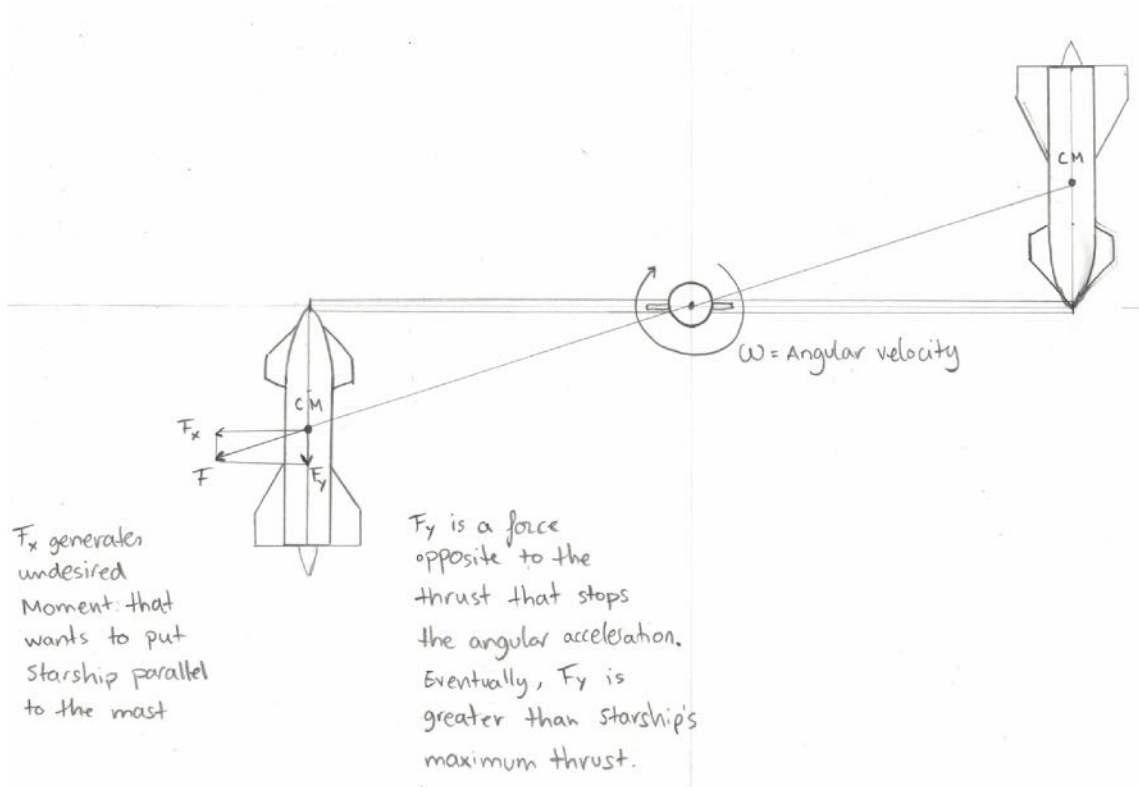 CM
ω = Angular velocity
CM
Fx
F
Fy
Fx generates
undesired
Moment that
wants to put
Starship parallel
to the mast
Fy is a force
opposite to the
thrust that stops
the angular acceleration.
Eventually, Fy is
greater than Starship's
maximum thrust.